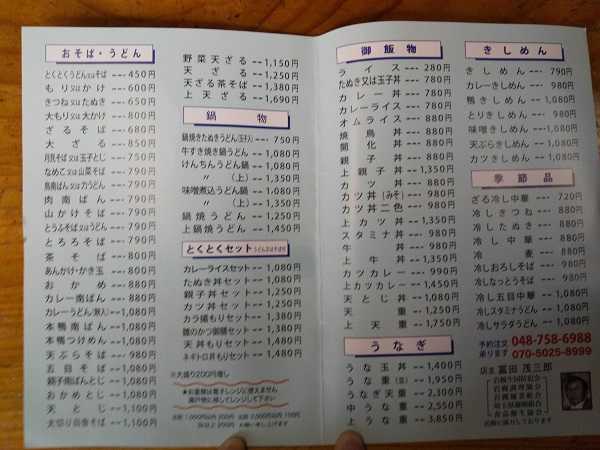 おそば・うどん
とくとくうどん又はそば 450円
もり又はかけ 600円
きつね又はたぬき 650円
大もり又は大かけ 800円
ざるそば 680円
大ざる 850円
月見そば又は玉子とじ 750円
なめこ又は山菜そば 790円
鳥南ばん又は力うどん 790円
肉南ばん 790円
山かけそば 790円
とろろそば 790円
茶そば 800円
あんかけ・かき玉 800円
おかめ 880円
カレー南ばん 880円
カレーうどん 880円
本鴨南ばん 1,080円
本鴨つけめん 1,080円
天ぷらそば 980円
五目そば 1,080円
親子南ばんとじ 1,080円
おかめとじ 1,080円
天とじ 1,100円
1,100円
野菜天ざる 1,150円
天ざる 1,250円
天ざる茶そば 1,380円
上天ざる 1,690円
鍋物
鍋焼きたぬきうどん(玉子入) 750円
牛すき焼き鍋うどん 1,080円
けんちんうどん鍋 1,080円
〃 (上) 1,350円
味噌煮込うどん鍋 1,080円
〃 (上) 1,350円
鍋焼うどん 1,250円
上鍋焼うどん 1,450円
とくとくセット
カレーライスセット 1,080円
たぬき丼セット 1,080円
親子丼セット 1,250円
カツ丼セット 1,250円
カラ揚もりセット 1,380円
雛のかつ御膳セット 1,380円
天丼もりセット 1,480円
ネギトロ丼もりセット 1,480円
※大盛り200円増し
★お重物は電子レンジに使えません
瀬戸物に移してレンジして下さい
御飯物
ライス 280円
たぬき又は玉子丼 780円
カレー丼 780円
カレーライス 780円
オムライス 880円
焼鳥丼 880円
開化丼 880円
親子丼 880円
上親子丼 1,350円
カツ丼 880円
カツ丼(みそ) 980円
カツ丼二色 980円
上カツ丼 1,350円
スタミナ丼 980円
牛丼 980円
上牛丼 1,350円
カツカレー 990円
上カツカレー 1,450円
天とじ丼 1,080円
天重 1,250円
上天重 1,750円
うなぎ
うな玉丼 1,400円
うな重(並) 1,950円
うなぎ天重 2,300円
中うな重 2,550円
上うな重 3,850円
きしめん
きしめん 790円
カレーきしめん 980円
鴨きしめん 1,080円
とりきしめん 980円
味噌きしめん 1,080円
天ぷらきしめん 1,080円
カツきしめん 1,080円
季節品
ざる冷し中華 720円
冷しきつね 880円
冷したぬき 880円
冷し中華 880円
冷麦 880円
冷しおろしそば 980円
冷しなっとうそば 980円
冷し五目中華 1,080円
冷しスタミナうどん 1,080円
冷しサラダうどん 1,080円
予約注文
承ります
048-758-6988
070-5025-8999
店主 冨田 茂三郎